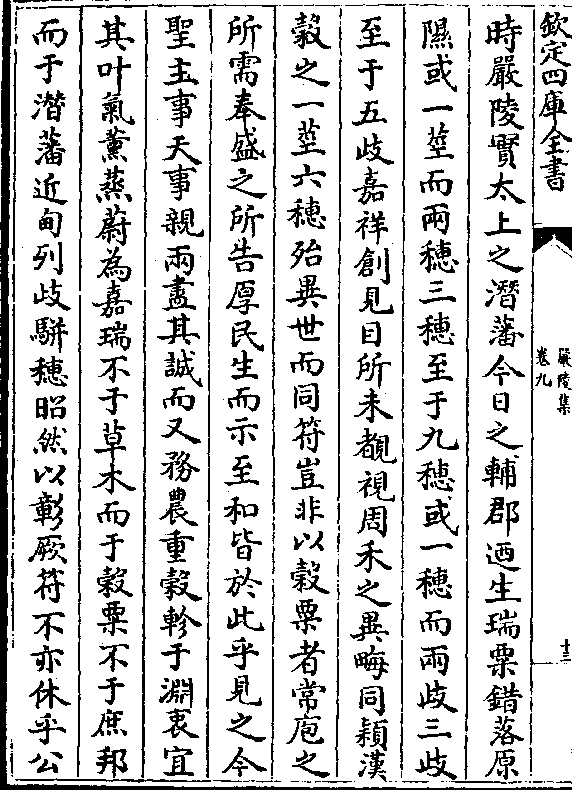 欽定四庫全書
嚴陵集
卷九
十二
時嚴陵實太上之潛藩今日之輔郡迺生瑞粟錯落原
隰或一莖而兩穗三穗至于九穗或一穗而兩歧三歧
至于五歧嘉祥創見目所未覩視周禾之異畮同穎漢
榖之一莖六穗殆異世而同符豈非以榖粟者常庖之
所需奉盛之所告厚民生而示至和皆於此乎見之今
聖主事天事親兩盡其誠而又務農重榖軫于淵衷宜
其叶氣薰蒸蔚為嘉瑞不于草木而于榖粟不于庶邦
而于潛藩近甸列歧駢穗昭然以彰厥符不亦休乎公